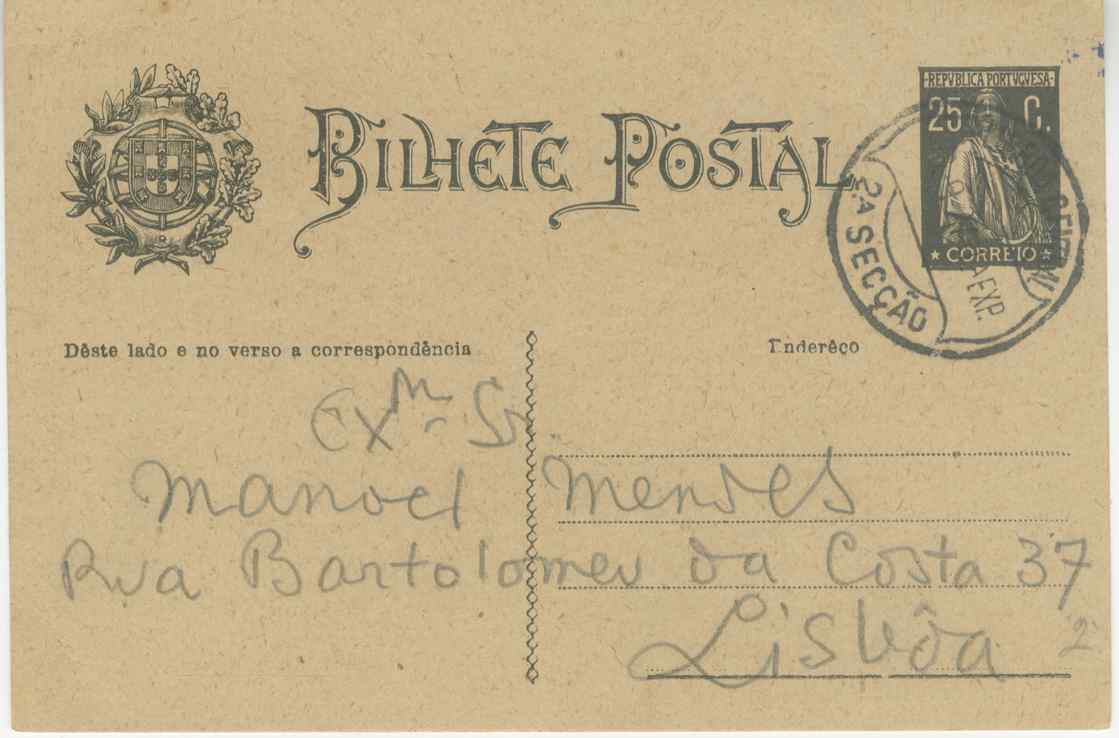 BILHETE POSTAL
REPVBLICA PORTVGVESA
25 C.
CORREIO
2ª SECÇÃO
EXP.
Dêste lado e no verso a correspondência
Enderêço
Exmº Sr.
Manoel Mendes
Rua Bartolomeu da Costa 37
Lisbôa 2